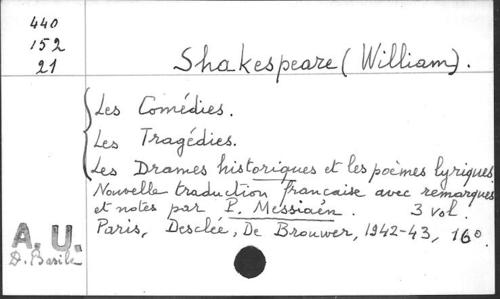 440
152
21
Shakespeare (William).
Les Comédies.
Les Tragédies.
Les Drames historiques et les poèmes lyriques
Nouvelle traduction française avec remarques
et notes par P. Messiaën. 3 vol.
Paris, Desclée, De Brouwer, 1942-43, 16º.
A. U.
D. Basile